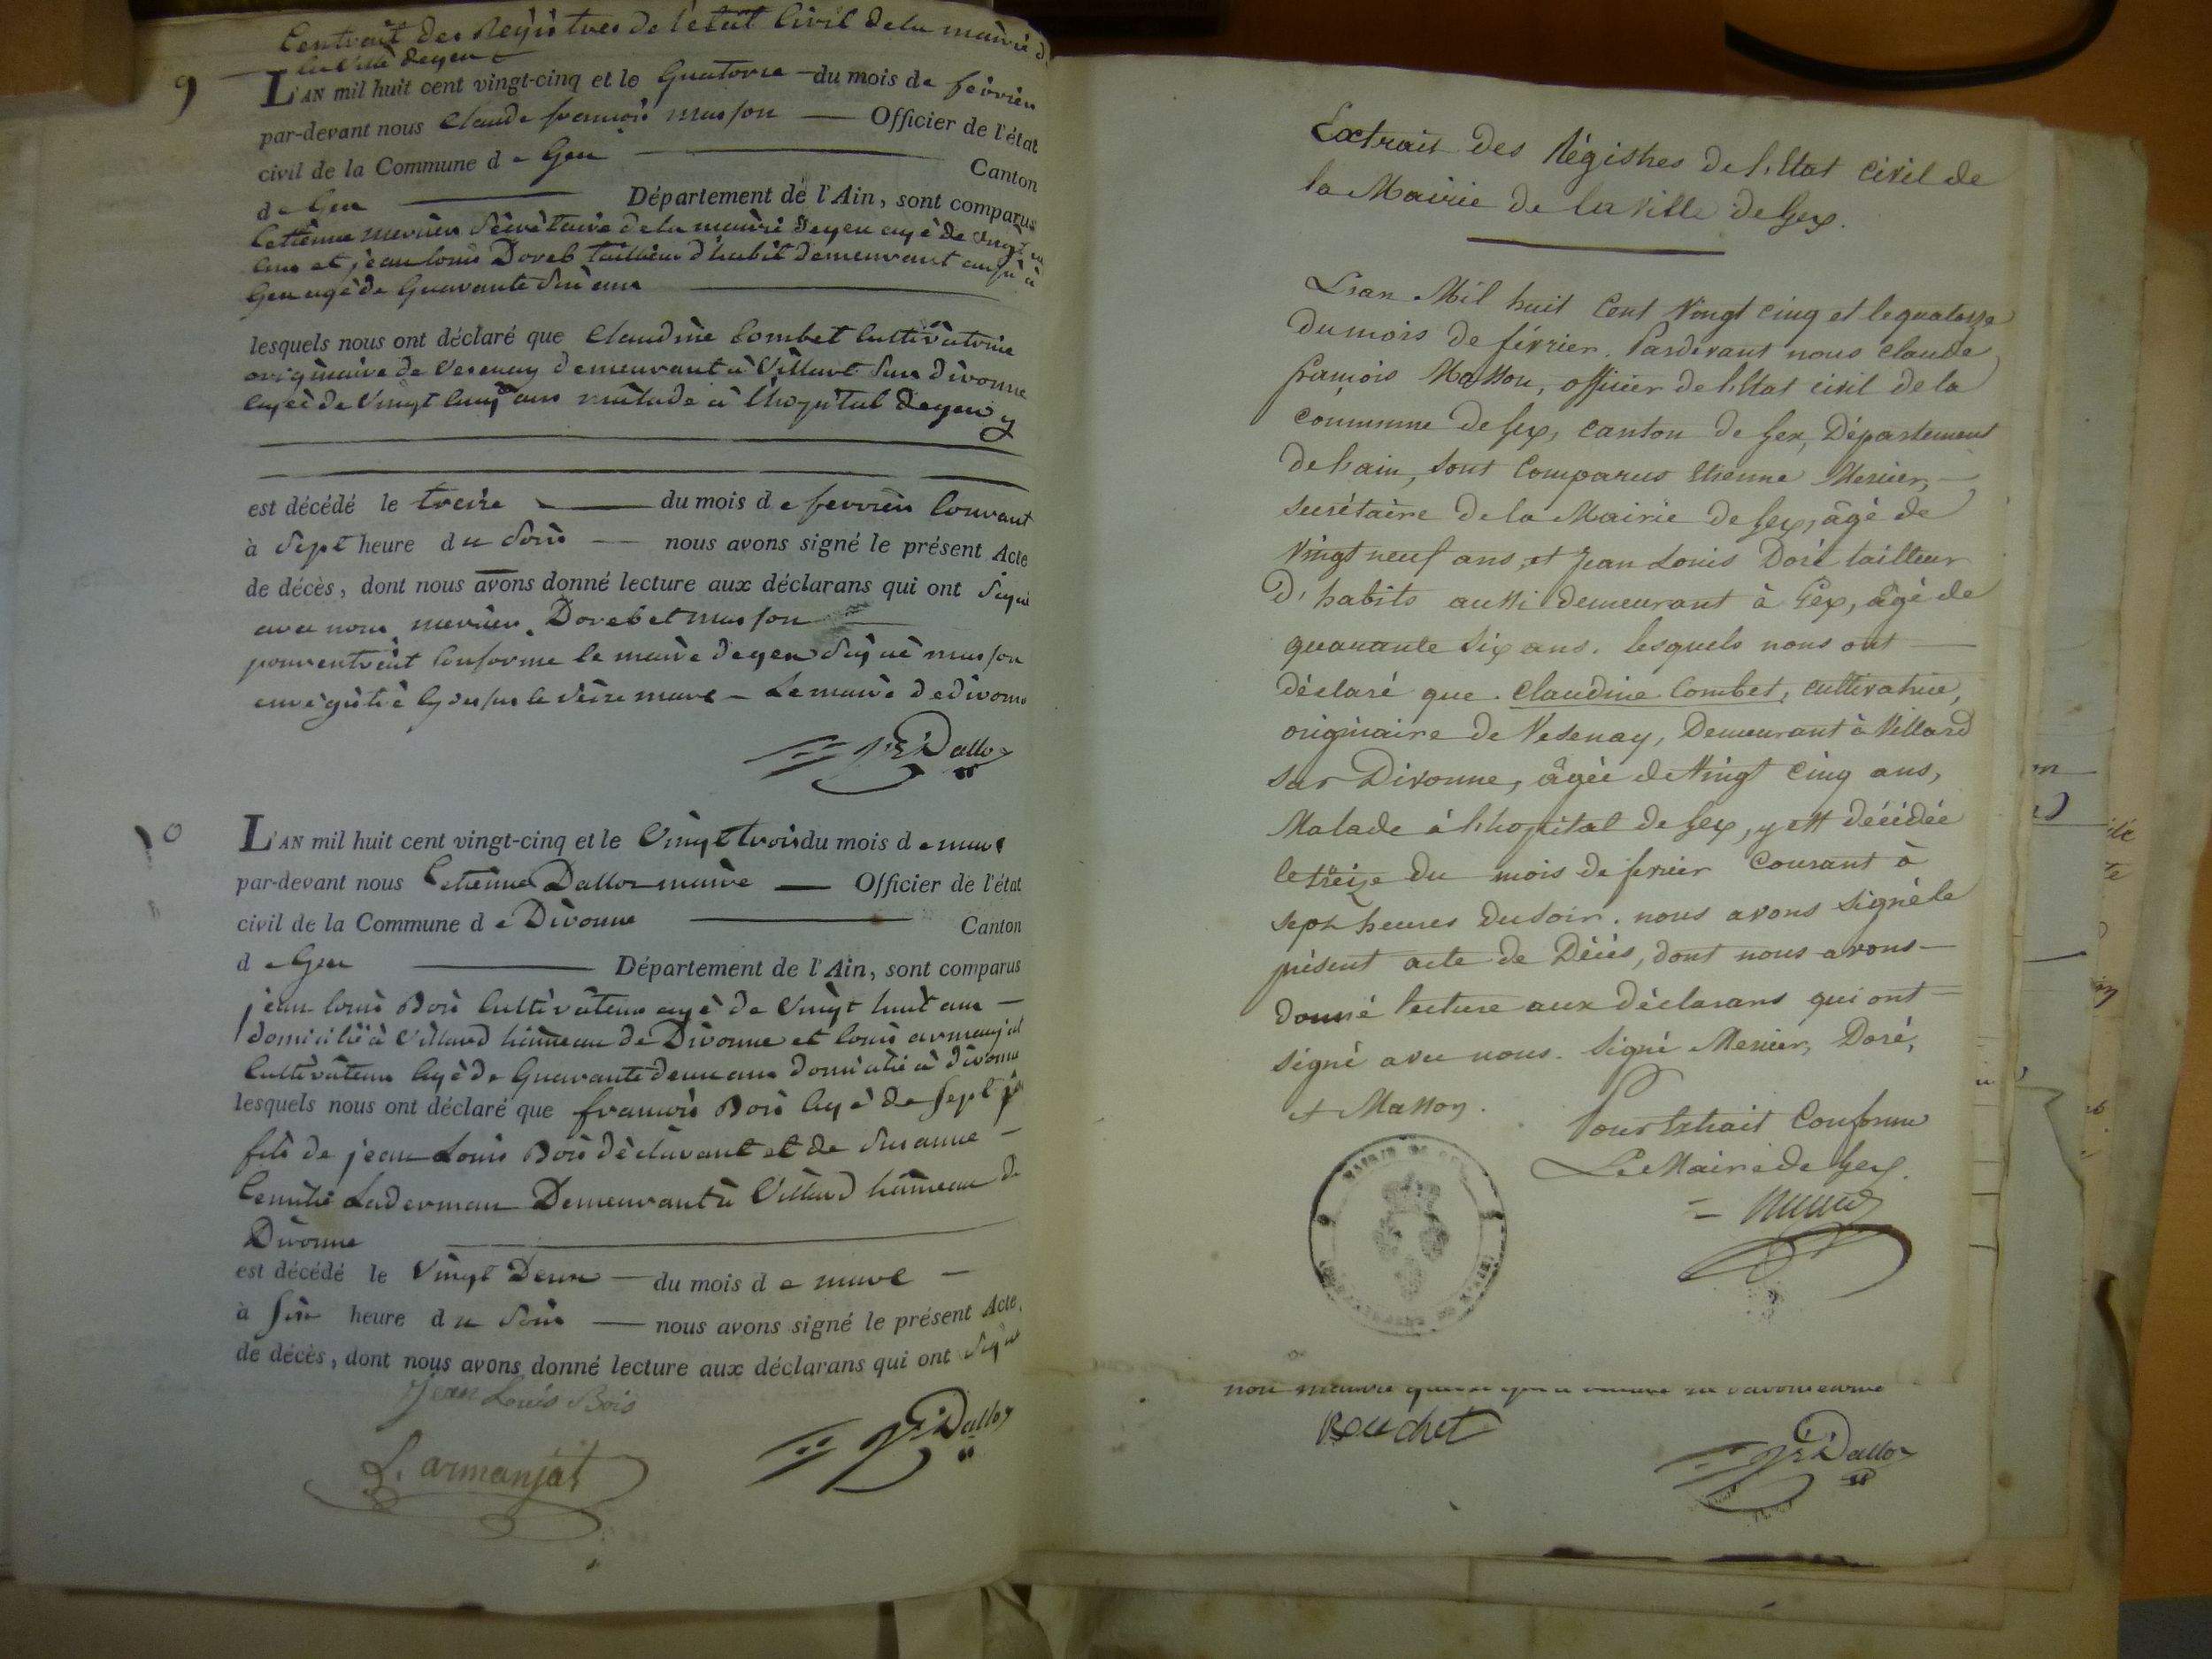 Extrait des Régistres de l'état Civil de la mairie d
la Ville de gex
9
L'AN mil huit cent vingt-cinq et le Quatorze du mois de février
par-devant nous Claude françois masson — Officier de l'état
civil de la Commune d e Gex — Canton
d e Gex — Département de l'Ain, sont comparus
Ettienne mernier Sécrétaire de la mairie de gex agé de vingt
ans et jean louis Doreb tailleur d'habit demeurant aussi à
Gex agé de Quarante Six ans
lesquels nous ont déclaré que Claudine Combet Cultivatrice
originaire de Vesenay demeurant à Villard Sur divonne
agée de Vingt Cinq ans malade à l'hopital de gex y
est décédé le treize — du mois d e fevrier Courant
à Sept heure du Soir — nous avons signé le présent Acte
de décès, dont nous avons donné lecture aux déclarans qui ont Signé
avec nous mernier Doreb et masson
pour extrait Conforme le maire de gex Signé masson
enrégistré le seize mars — Le maire de divonne
Dalloz
10
L'AN mil huit cent vingt-cinq et le Vingt trois du mois d e mars
par-devant nous Ettienne Dalloz maire — Officier de l'état
civil de la Commune d e Divonne — Canton
d e Gex — Département de l'Ain, sont comparus
jean louis Bois Cultivateur agé de Vingt huit ans —
domicilié à Villard hameau de Divonne et louis armanjat
Cultivateur agé de Quarante deux ans domicilié à divonne
lesquels nous ont déclaré que françois Bois agé de sept
fils de jean Louis Bois déclarant et de Susanne —
Emilie Laderman Demeurant à Villard hameau de
Divonne
est décédé le Vingt Deux — du mois d e mars —
à Six heure du Soir — nous avons signé le présent Acte
de décès, dont nous avons donné lecture aux déclarans qui ont Signé
Jean Louis Bois
L. armanjat
Dalloz
Extrait des Régistres de l'Etat Civil de
la Mairie de la Ville de Gex.
L'an Mil huit Cent Vingt Cinq et le quatorze
du mois de février. Pardevant nous Claude
françois Masson, officier de l'Etat civil de la
commune de Gex, canton de Gex, Département
de l'ain, sont Comparus Etienne Mernier, —
secrétaire de la Mairie de Gex, âgé de
Vingt neuf ans, et Jean Louis Doré tailleur
d'habits aussi demeurant à Gex, âgé de
quarante Six ans. lesquels nous ont —
déclaré que Claudine Combet, cultivatrice,
originaire de Vesenay, Demeurant à Villard
Sur Divonne, âgée de Vingt Cinq ans,
Malade à l'hopital de Gex, y est décédée
le treize du mois de fevrier Courant à
sept heures du soir. nous avons Signé le
présent acte de Décès, dont nous avons —
donné lecture aux déclarans qui ont —
signé avec nous. Signé Mernier, Doré,
et Masson.
Pour Extrait Conforme
Le Maire de Gex.
MAIRIE DE GEX
Rouchet
Dalloz